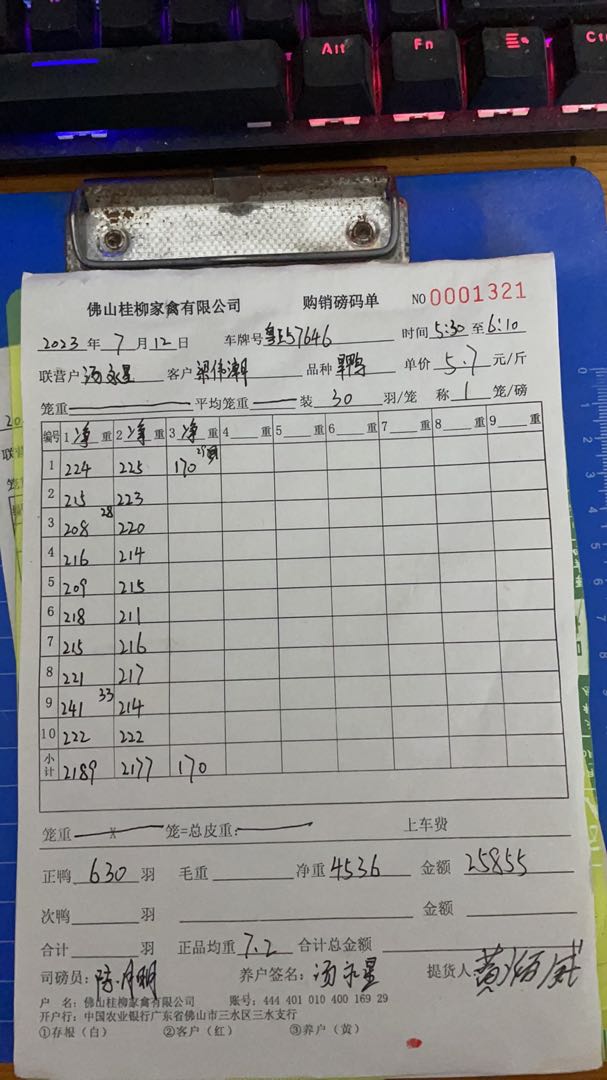 Alt Fn
佛山桂柳家禽有限公司 购销磅码单 NO 0001321
2023 年 7 月 12 日 车牌号 57646 时间 5:30 至 6:10
联营户 汤永星 客户 梁伟潮 品种 单价 5.7 元/斤
笼重 平均笼重 装 30 羽/笼 称 1 笼/磅
编号 1 净 重 2 净 重 3 净 重 4 重 5 重 6 重 7 重 8 重 9 重
1 224 225 170
2 215 223
3 208 28 220
4 216 214
5 209 215
6 218 211
7 215 216
8 221 217
9 241 33 214
10 222 222
小计 2189 2177 170
笼重 X 笼=总皮重: 上车费
正鸭 630 羽 毛重 净重 4536 金额 25855
次鸭 羽 金额
合计 羽 正品均重 7.2 合计总金额
司磅员: 养户签名: 汤永星 提货人
户 名: 佛山桂柳家禽有限公司 账号: 444 401 010 400 169 29
开户行: 中国农业银行广东省佛山市三水区三水支行
①存根(白) ②客户(红) ③养户(黄)